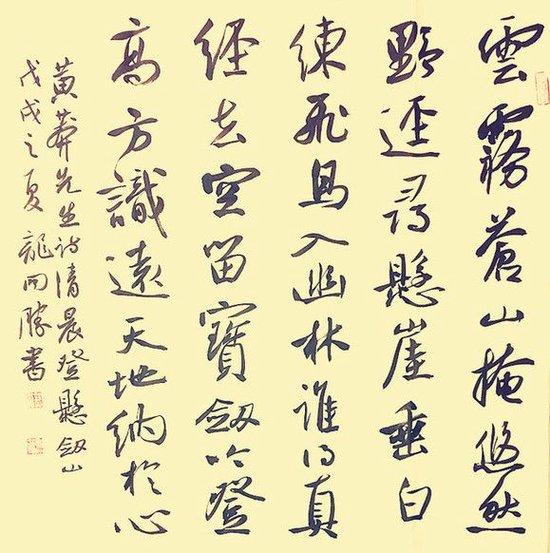 雲霧蒼山掩悠然
野逕尋懸崖垂白
練飛鳥入幽林誰得真
經去空留寶劍吟登
高方識遠天地納於心
黃莽先生詩清晨登懸劍山
戊戌之夏龍開勝書